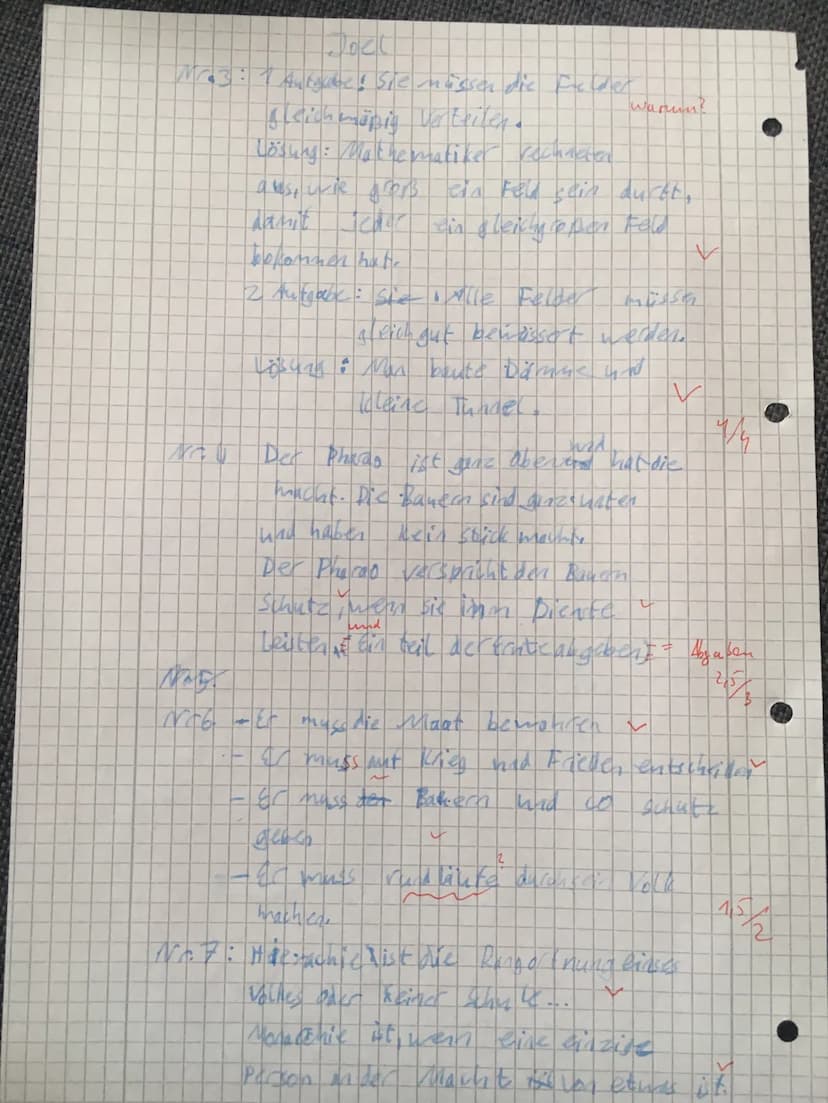 Joel
Nr.3: 1 Aufgabe: Sie müssen die Felder
warum?
gleichmäßig verteilen.
Lösung: Mathematiker rechneten
aus, wie groß ein Feld sein durft,
damit jeder ein gleichgroßen Feld
bekommen hat.
2 Aufgabe: Sie Alle Felder müssen
gleich gut bewässert werden.
Lösung: Man baute Dämme und
kleine Tunnel.
4/4
Nr. 4 Der Pharao ist ganz oben und hat die
macht. Die Bauern sind ganz unten
und haben kein stück macht.
Der Pharao verspricht den Bauern
Schutz, wen sie imm Dienste
Leisten, und Ein teil der Ernte abgeben = Abgaben
2,5/3
Nr.5:
Nr.6 - Er muss die Maat bewahren
- Er muss auf Krieg und Frieden entscheiden
- Er muss der Bauern und co schutz
geben
- Er muss rundläufe durch sein Volk
?
machen.
1,5/2
Nr.7: Hierachie ist die Rangortnung eines
Volkes oder keiner Schule...
Monarchie ist, wenn eine einzige
Person an der Macht ist von etwas ist.